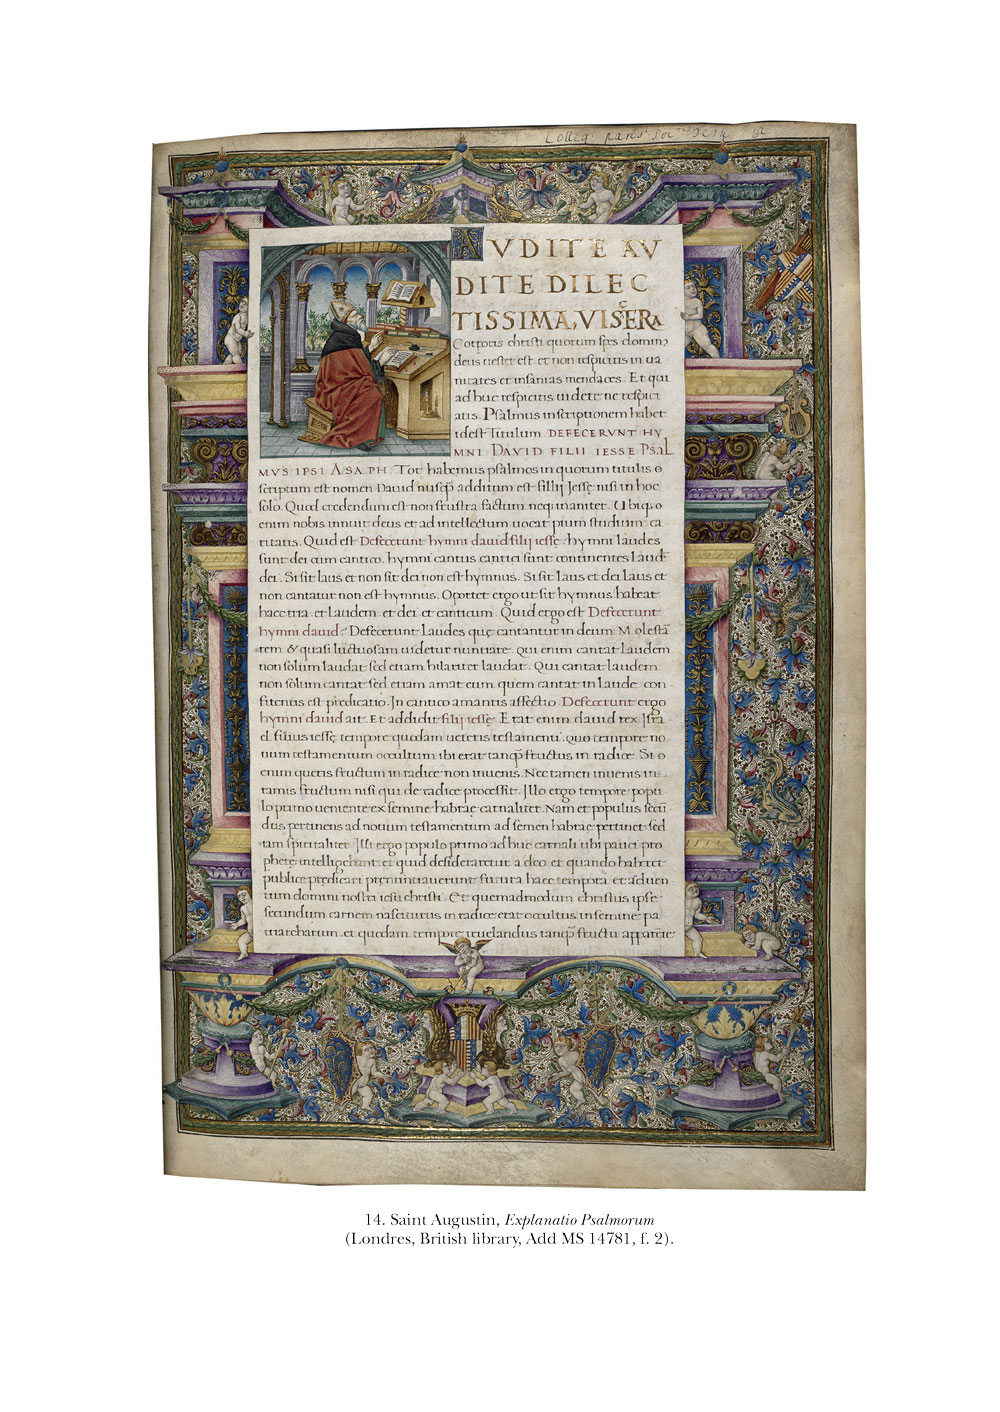 Colleg. paris. Soc. Jesu
AVDITE AV
DITE DILEC
TISSIMA, VISCERA
Corporis christi quorum spes dominꝰ
deus nester est et non respicitis in ua
nitates et insanias mendaces. Et qui
ad huc respicitis uidete ne respici
atis. Psalmus inscriptionem habet
idest Titulum DEFECERVNT HY
MNI DAVID FILII IESSE PSAL
MVS IPSI ASAPH Tot habemus psalmos in quorum titulis
scriptum est nomen Dauid nusq̃ additum est fillij Jessę nisi in hoc
solo. Quod credendum est non frustra factum neq; inaniter. Ubiq;
enim nobis innuit deus et ad intellectum uocat pium studium ca
ritatis. Quid est Defecerunt hymni dauid filij iessę. hymni laudes
sunt dei cum cantico. hymni cantus cantici sunt continentes laudẽ
dei. Si sit laus et non sit dei non est hymnus. Si sit laus et dei laus et
non cantatur non est hymnus. Oportet ergo ut sit hymnus habeat
haec tria. et laudem. et dei. et canticum. Quid ergo est Defecerunt
hymni dauid? Defecerunt laudes quę cantantur in deum Molestã
rem & quasi luctuosam uidetur nuntiare. Qui enim cantat laudem
non solum laudat sed etiam hilariter laudat. Qui cantat laudem
non solum cantat sed etiam amat eum quem cantat in laude con
fitentis est prędicatio. In cantico amantis affectio. Defecerunt ergo
hymni dauid ait. Et addidit filij iessę. Erat enim dauid rex Isra
el filius iessę tempore quodam ueteris testamenti. quo tempore no
uum testamentum occultum ibi erat tanq̃ fructus in radice. Si
enim queris fructum in radice non inuenis. Nec tamen inuenis in
ramis fructum nisi qui de radice processit. Illo ergo tempore popu
lo primo ueniente ex semine habrae carnaliter. Nam et populus secũ
dus pertinens ad nouum testamentum ad semen habrae pertinet sed
iam spiritaliter. Illi ergo populo primo ad huc carnali ubi pauci pro
phetę intelligebant et quid desideraretur a deo et quando haberet
publice prędicari prenuntiauerunt futura haec tempora. et aduen
tum domini nostri iesu christi. Et quemadmodum christus ipse
secundum carnem nasciturus in radice erat occultus in semine pa
triarcharum. et quodam tempore reuelandus tanq̃ fructu apparẽte
14. Saint Augustin, Explanatio Psalmorum
(Londres, British library, Add MS 14781, f. 2).